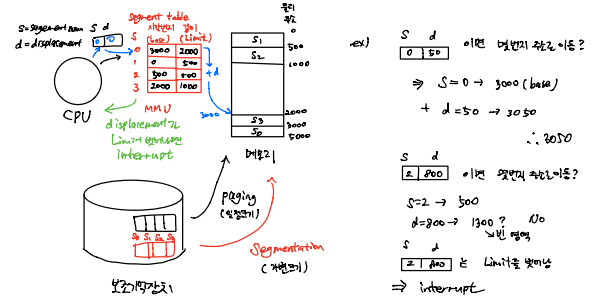 S=segement num
d=displacement
S d
0 50
CPU
Segment table
시작번지 길이
S (base) (Limit)
0 3000 2000
1 0 500
2 500 500
3 2000 1000
MMU
+d
3000
displacement가
Limit 벗어나면
interrupt
물리
주소
0
S1
500
S2
1000
2000
S3
3000
S0
5000
메모리
paging
(일정크기)
S0 S1 S2 S3
Segmentation
(가변크기)
보조기억장치
ex)
S d
0 50 이면 몇번지 주소로 이동?
⇒ S=0 → 3000 (base)
+ d=50 → 3050
∴ 3050
S d
2 800 이면 몇번지 주소로 이동?
S=2 → 500
d=800 → 1300 ? No
↘ 빈 영역
S d
2 800 는 Limit을 벗어남
⇒ interrupt